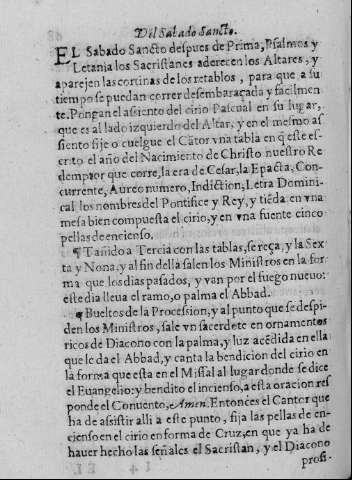 Del Sabado Sancto.
EL Sabado Sancto despues de Prima, Psalmos y
Letania los Sacristanes aderecen los Altares, y
aparejen las cortinas de los retablos, para que a su
tiempo se puedan correr desembaraçada y facilmen
te. Pongan el assiento del cirio Pascual en su lugar,
que es al lado izquierdo del Altar, y en el mesmo as
siento fije o cuelgue el Cãtor vna tabla en q̃ este es-
crito el año del Nacimiento de Christo nuestro Re
demptor que corre, la era de Cesar, la Epacta, Con-
currente, Aureo numero, Indiction, Letra Domini-
cal, los nombres del Pontifice y Rey, y tiẽda en vna
mesa bien compuesta el cirio, y en vna fuente cinco
pellas de encienso.
¶ Tañido a Tercia con las tablas, se reça, y la Sex
ta y Nona, y al fin della salen los Ministros en la for
ma que los dias pasados, y van por el fuego nuevo:
este dia lleua el ramo, o palma el Abbad.
¶ Bueltos de la Procession, y al punto que se despi-
den los Ministros, sale vn sacerdete en ornamentos
ricos de Diacono con la palma, y luz acẽdida en ella
que le da el Abbad, y canta la bendicion del cirio en
la forma que esta en el Missal al lugar donde se dice
el Euangelio: y bendito el incienso, a esta oracion res
ponde el Conuento, Amen. Entonces el Cantor que
ha de assistir alli a este punto, fija las pellas de en-
cienso en el cirio en forma de Cruz, en que ya ha de
hauer hecho las señales el Sacristan, y el Diacono
prosi-